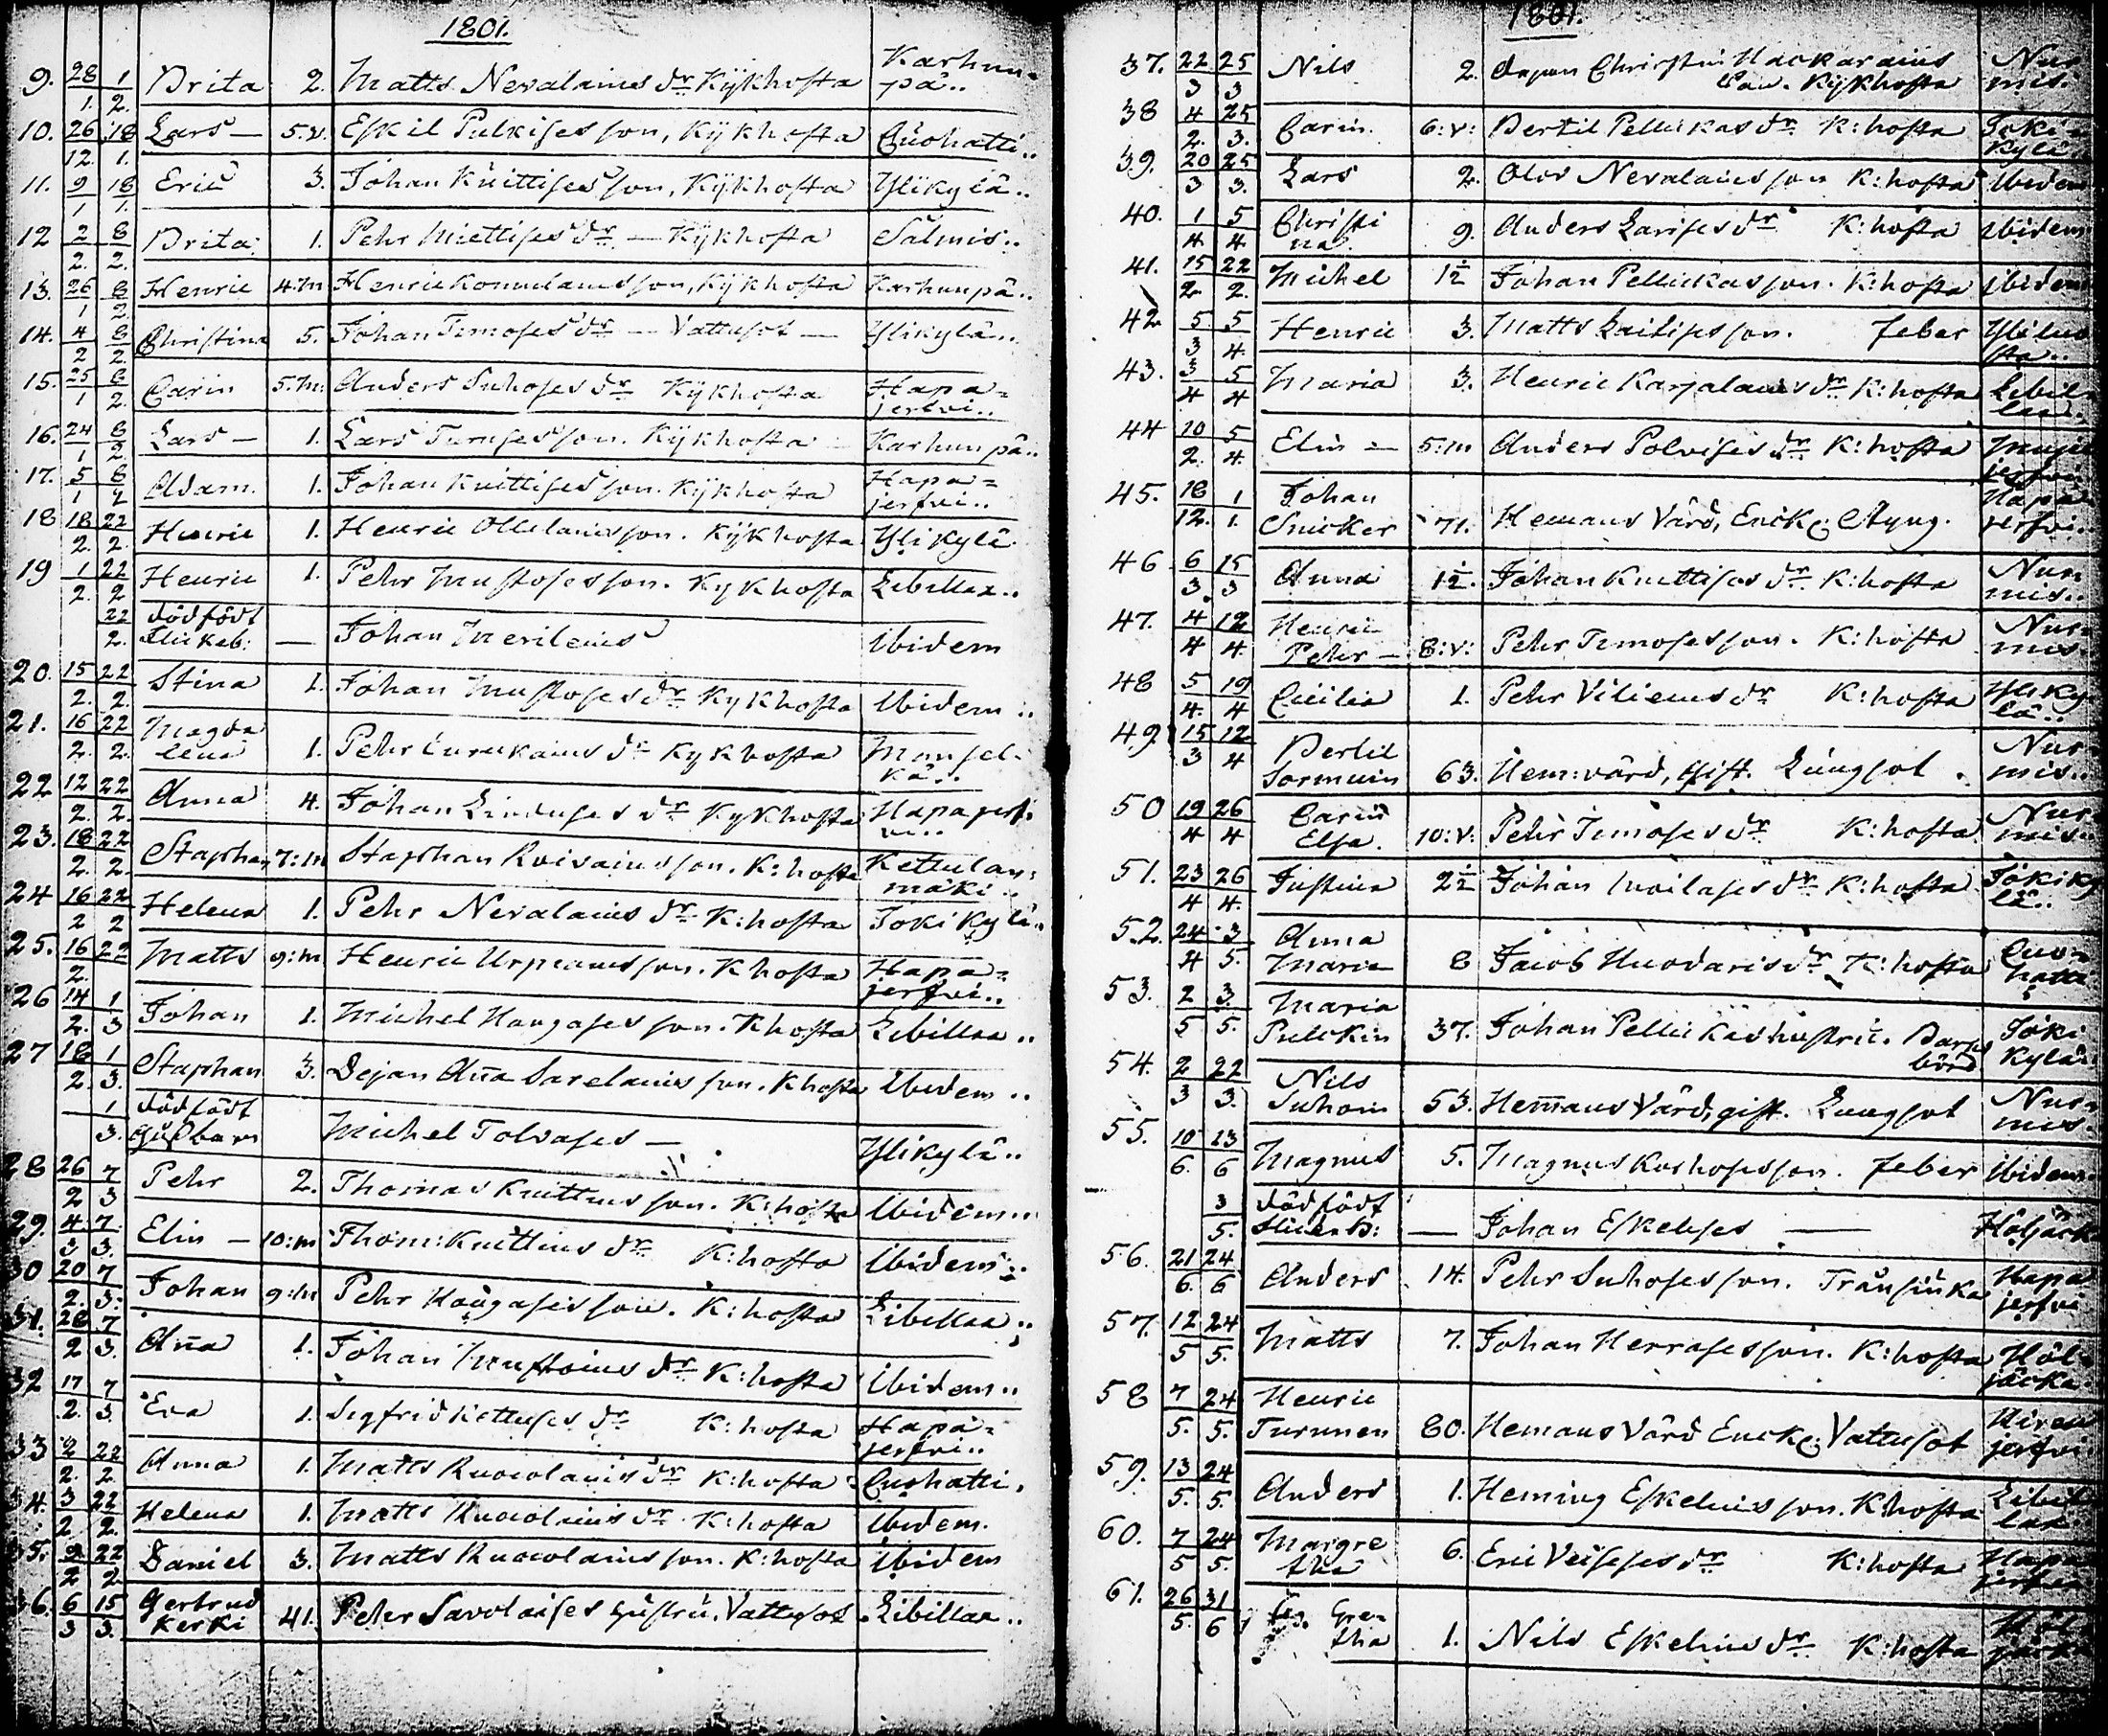 1801.
9. 28/1. 1/2. Brita 2. Matts Nevalains dr Kykhosta Karhunpä..
10. 26/12. 18/1. Lars — 5.v. Eskil Pulkises son, Kykhosta Cuohatti..
11. 9/1 18/1. Eric 3. Johan Kuittises son, Kykhosta Ylikylä..
12 2/2. 8/2. Brita 1. Pehr Miettises dr — Kykhosta Salmis..
13. 26/1 8/2 Henric 4.m Henric Konnulains son, Kykhosta Karhunpä..
14. 4/2 8/2. Christina 5. Johan Timoses dr — Vattusot — Ylikylä..
15. 25/1 8/2. Carin 5.m: Anders Suhoses dr Kykhosta Hapajerfvi..
16. 24/1 8/2 Lars — 1. Lars Turuses son. Kykhosta — Karhunpä..
17. 5/1 8/2 Adam. 1. Johan Kuittises son. Kykhosta Hapa=jerfvi..
18 18/2. 22/2. Henric 1. Henric Ollilains son. Kykhosta Ylikylä.
19 1/2. 22/2 Henric 1. Pehr Mustoses son. Kykhosta Libillax..
22/2. dödfödt Flickeb: — Johan Meriläins Ibidem
20. 15/2. 22/2. Stina 1. Johan Mustoses dr Kykhosta Ibidem..
21. 16/2. 22/2. Magdalena 1. Pehr Turukains dr Kykhosta Monselkä..
22 12/2. 22/2. Anna 4. Johan Linduses dr Kykhosta Hapajerfvi..
23. 18/2. 22/2. Staphan 7:m Staphan Roivains son. K:hosta Kettulanmäki..
24 16/2 22/2 Helena 1. Pehr Nevalains dr K:hosta Jokikylä..
25. 16/2. 22 Matts 9:m Henric Urpiains son. Khosta Hapa=jerfvi..
26 14/2. 1/3 Johan 1. Michel Haugases son. Khosta Libillax..
27 18/2. 1/3. Staphan 3. Dejan Aña Sarelains son. Khosta Ibidem..
1/3. dödfödt Gåsbarn Michel Tolvases — Ylikylä..
28 26/2 7/3 Pehr 2. Thomas Kuittins son. K:hosta Ibidem..
29. 4/3 7/3. Elin — 10:m Thom: Kuittins dr K:hosta Ibidem..
30 20/2. 7/3: Johan 9:m Pehr Haugases son. K:hosta Libillax..
31. 28/2 7/3. Aña 1. Johan Mustoins dr K:hosta Ibidem..
32 17/2. 7/3. Eva 1. Sigfrid Kettuses dr K:hosta Hapa=jerfvi..
33 2/2. 22/2. Anna 1. Matts Ruocolains dr K:hosta Cuohatti.
34. 3/2 22/2. Helena 1. Matts Ruocolains dr K:hosta Ibidem.
35. 9/2 22/2 Daniel 3. Matts Ruocolains son. K:hosta Ibidem
36. 6/3 15/3. Gertrud Kerki 41. Pehr Savolaises hustru. Vattusot Libillax..
1801.
37. 22/3 25/3 Nils 2. Christin Hackarains Kykhosta Nurmis.
38 4/2. 25/3. Carin. 6:v: Bertil Pellickas dr K:hosta Jokikylä..
39. 20/3 25/3. Lars 2. Olov Nevalains son K:hosta Ibidem
40. 1/4 5/4. Christina 9. Anders Larises dr K:hosta Ibidem
41. 15/2 22/2. Michel 1½ Johan Pellickas son. K:hosta Ibidem
42 5/3 5/4. Henric 3. Matts Laitises son. feber
43. 3/4 5/4 Maria 3. Henric Karjalains dr K:hosta Libillax.
44 10/2. 5/4. Elin — 5:m Anders Polvises dr K:hosta Mujejerfvi
45. 18/12. 1/1. Johan Snicker 71. Hemans Vård, Enck. Hapajerfvi..
46 6/3. 15/3 Anna 1½. Johan Kuittises dr K:hosta Nurmis..
47. 4/4 12/4. Henric Pehr — 8:v: Pehr Timoses son. K:hosta Nurmis.
48 5/4. 19/4 Cicilia 1. Pehr Viliems dr K:hosta Ylikylä..
49. 15/3 12/4 Bertil Sormuin 63. Hem:vård, gift. Lungsot. Nurmis..
50 19/4 26/4 Carin Elsa. 10:v: Pehr Timoses dr K:hosta Nurmis.
51. 23/4 26/4. Justina 2½ Johan Moilases dr K:hosta Jokikylä..
52. 24/4 3/5. Anna Maria 8 Jacob Huovaris dr K:hosta Cuohatti
53. 2/5 3/5. Maria Pulckin 37. Johan Pellickas hustru. Barnsbörd Jokikylä.
54. 2/3 22/3. Nils Suhoin 53. Hemans Vård, gift. Lungsot Nurmis.
55. 10/6. 13/6 Magnus 5. Magnus Korhoses son. feber Ibidem.
3/5. dödfödt flickeb: — Johan Eskelises — Höljäck
56. 21/6. 24/6 Anders 14. Pehr Suhoses son. Transiuka Hapajerfvi
57. 12/5 24/5. Matts 7. Johan Herrases son. K:hosta Höljäcka.
58 7/5. 24/5. Henric Turunen 80. Hemans Vård Enck. Vattusot Hirvijerfvi
59. 13/5. 24/5. Anders 1. Heming Eskelins son. K:hosta Libillax.
60. 7/5 24/5. Margretha 6. Eric Veiseses dr K:hosta Hapajerfvi
61. 26/5. 31/6 Gretha 1. Nils Eskelins dr K:hosta Höljäcka